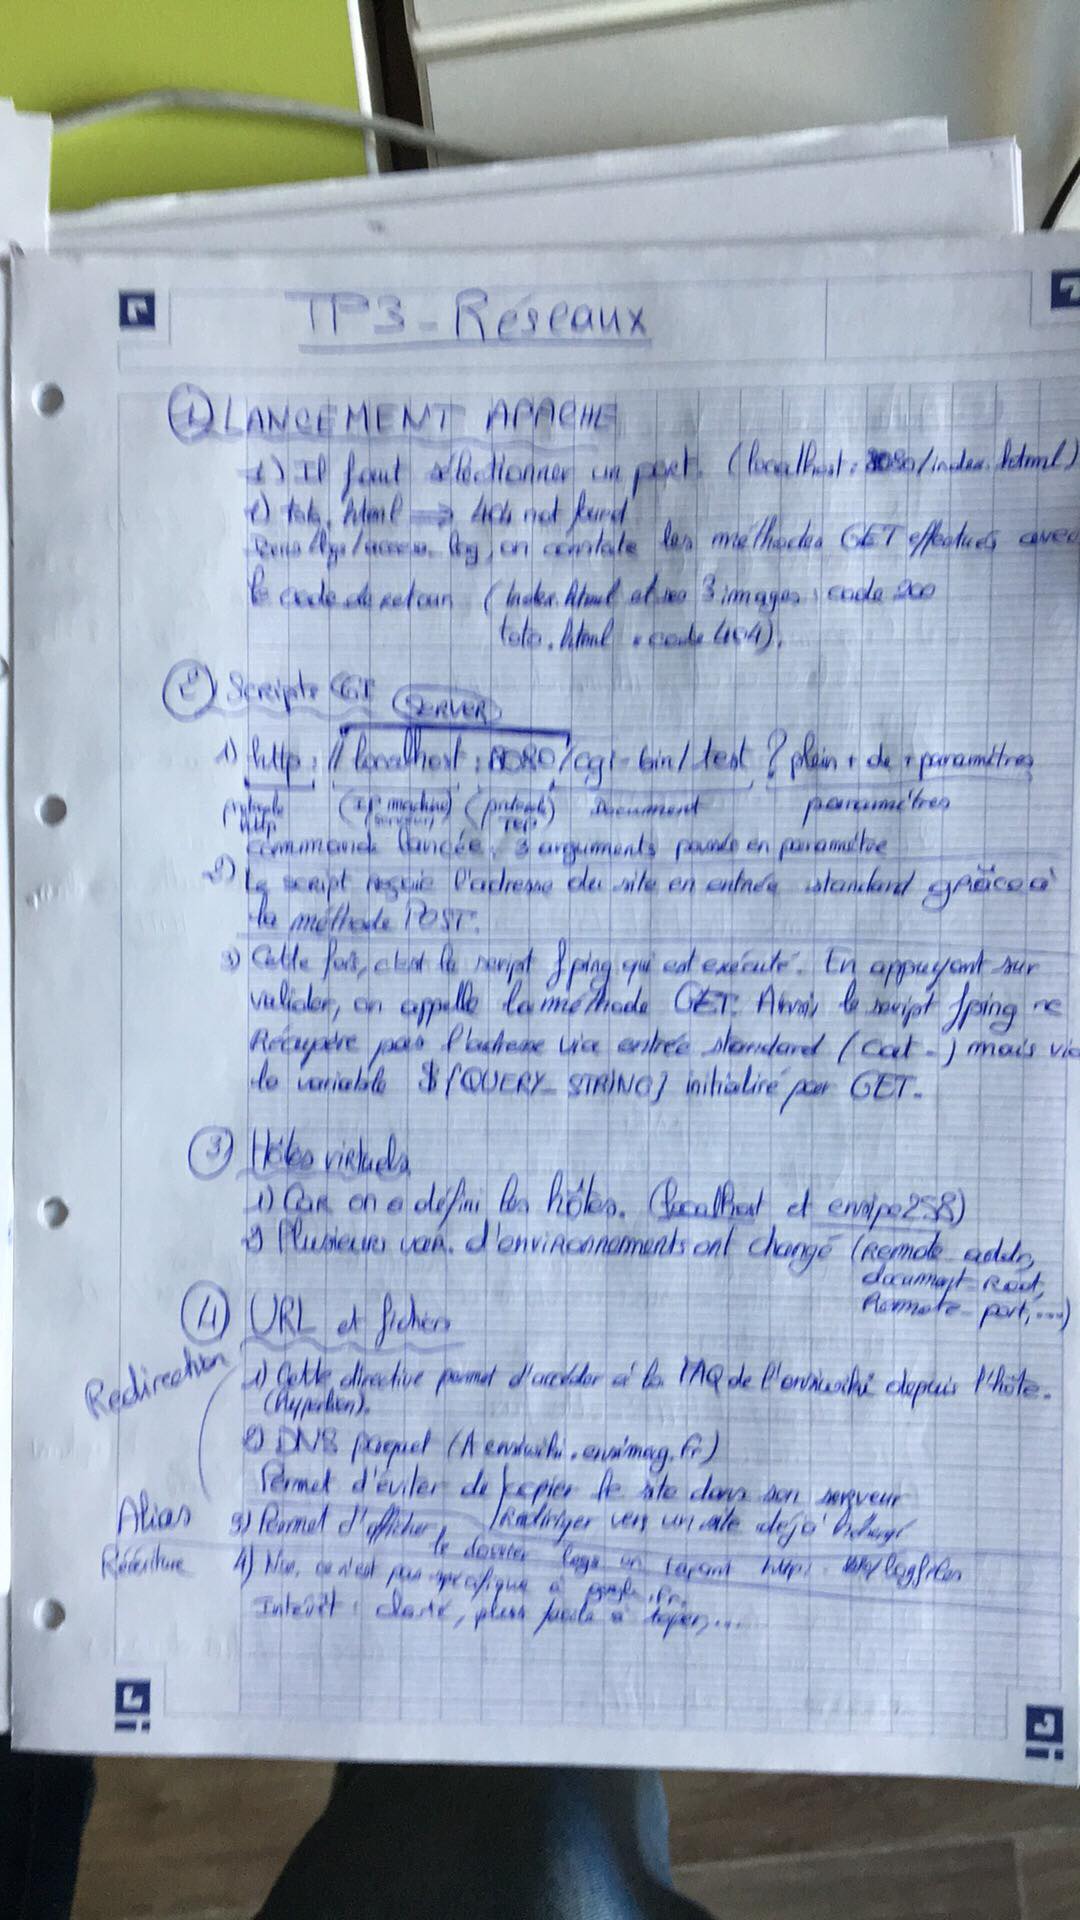 TP3 - Réseaux
① LANCEMENT APACHE
1) Il faut sélectionner un port. (localhost : 8080/index.html)
2) toto.html ⇒ 404 not found
Dans logs/access.log, on constate les méthodes GET effectués avec
le code de retour (index.html et ses 3 images : code 200
toto.html : code 404).
② Scripts CGI SERVER
1) http://localhost:8080/cgi-bin/test ? plein + de + paramètres
protocole http (IP machine) (protocole TCP) Document paramètres
commande lancée : 3 arguments passés en paramètre
2) Le script reçoie l'adresse du site en entrée standard grâce à
la méthode POST.
3) Cette fois, c'est le script fping qui est exécuté. En appuyant sur
valider, on appelle la méthode GET. Ainsi le script fping ne
Récupère pas l'adresse via entrée standard (cat -) mais via
la variable ${QUERY_STRING} initialisé par GET.
③ Hôtes virtuels
1) Car on a défini les hôtes. (localhost et ensipc258)
2) Plusieurs var. d'environnements ont changé (Remote addr,
document_Root,
Remote-port, ...)
④ URL et fichiers
Redirection
1) Cette directive permet d'accéder à la FAQ de l'ensiwiki depuis l'hôte.
2) DNS paquet (A ensiwiki.ensimag.fr)
Permet d'éviter de copier le site dans son serveur
/ Rediriger vers un site déjà
Alias 3) Permet d'afficher le dossier logs en tapant http: /logfiles
Réécriture 4) Non, ce n'est pas spécifique à google.fr.
Intérêt : clarté, plus facile à taper, ...